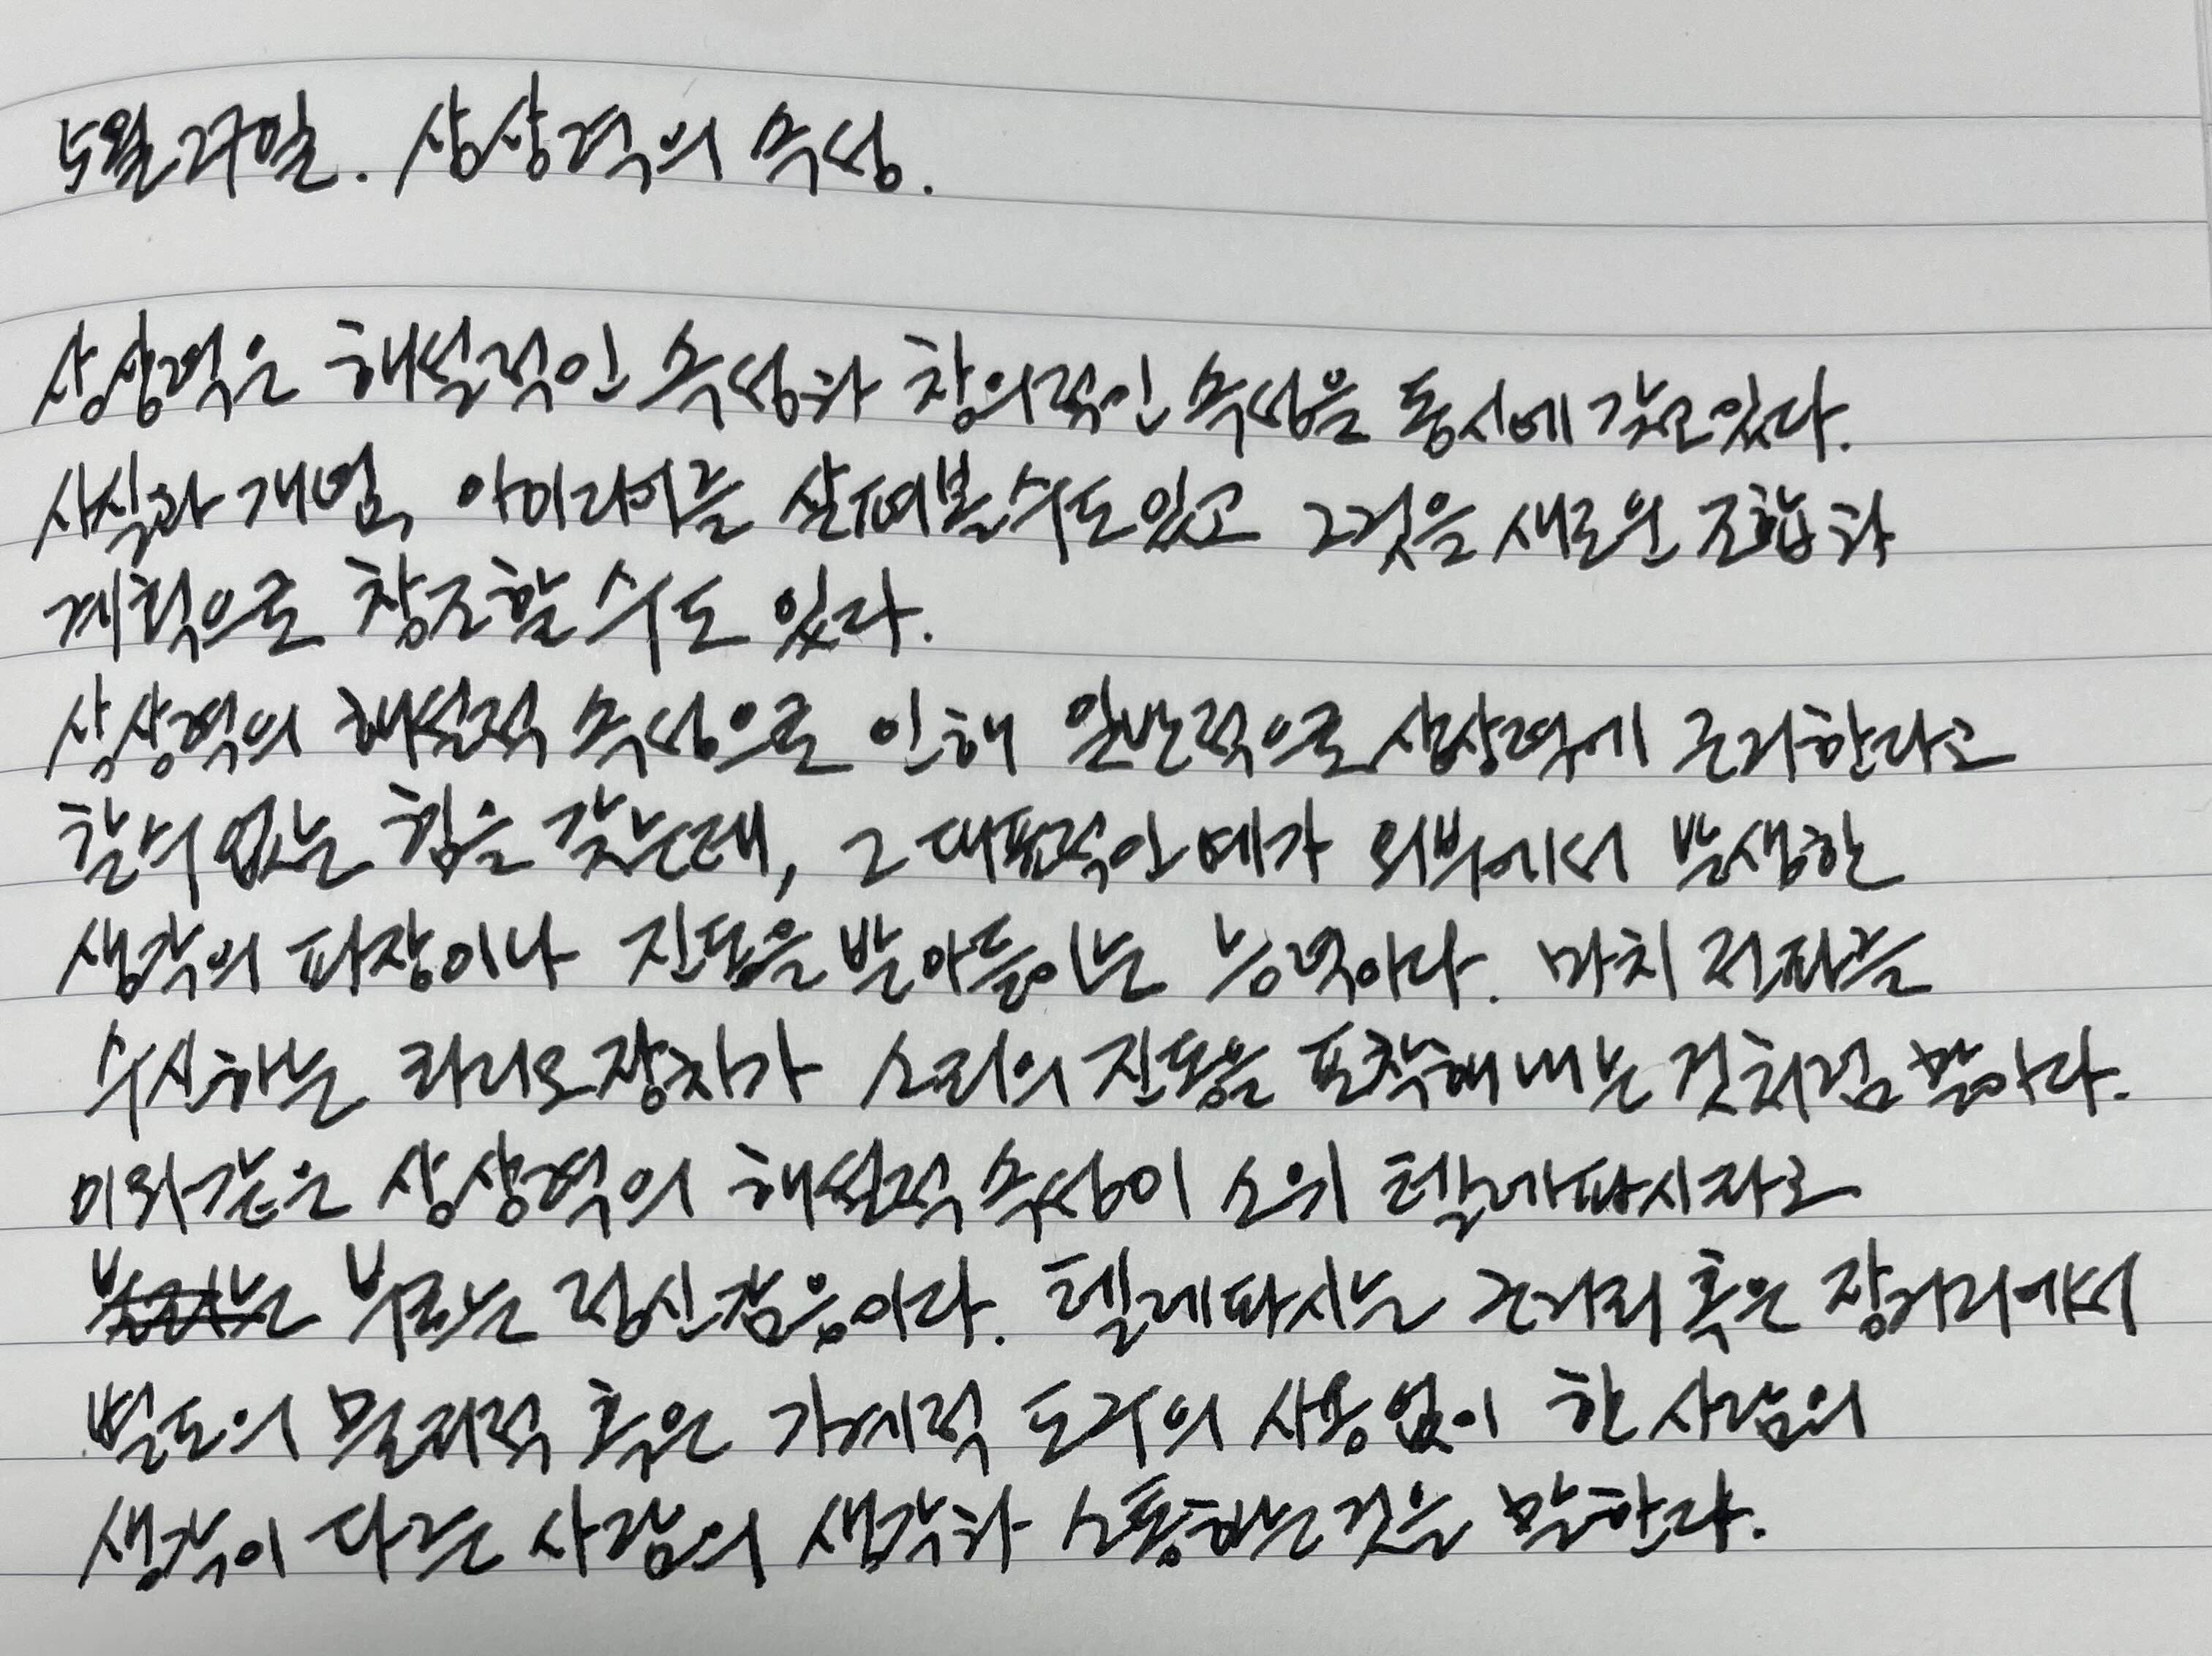 5월 27일. 상상력의 속성.
상상력은 해설적인 속성과 창의적인 속성을 동시에 갖고있다.
사실과 개념, 아이디어를 살펴볼 수도 있고 그것을 새로운 조합과
계획으로 창조할 수도 있다.
상상력의 해설적 속성으로 인해 일반적으로 상상력에 근거한다고
할 수 없는 힘을 갖는데, 그 대표적인 예가 외부에서 발생한
생각의 파장이나 진동을 받아들이는 능력이다. 마치 전파를
수신하는 라디오 장치가 소리의 진동을 포착해내는 것처럼 말이다.
이와같은 상상력의 해설적 속성이 소위 텔레파시라고
부르는 정신감응이다. 텔레파시는 근거리 혹은 장거리에서
별도의 물리적 혹은 기계적 도구의 사용없이 한 사람의
생각이 다른 사람의 생각과 소통하는 것을 말한다.